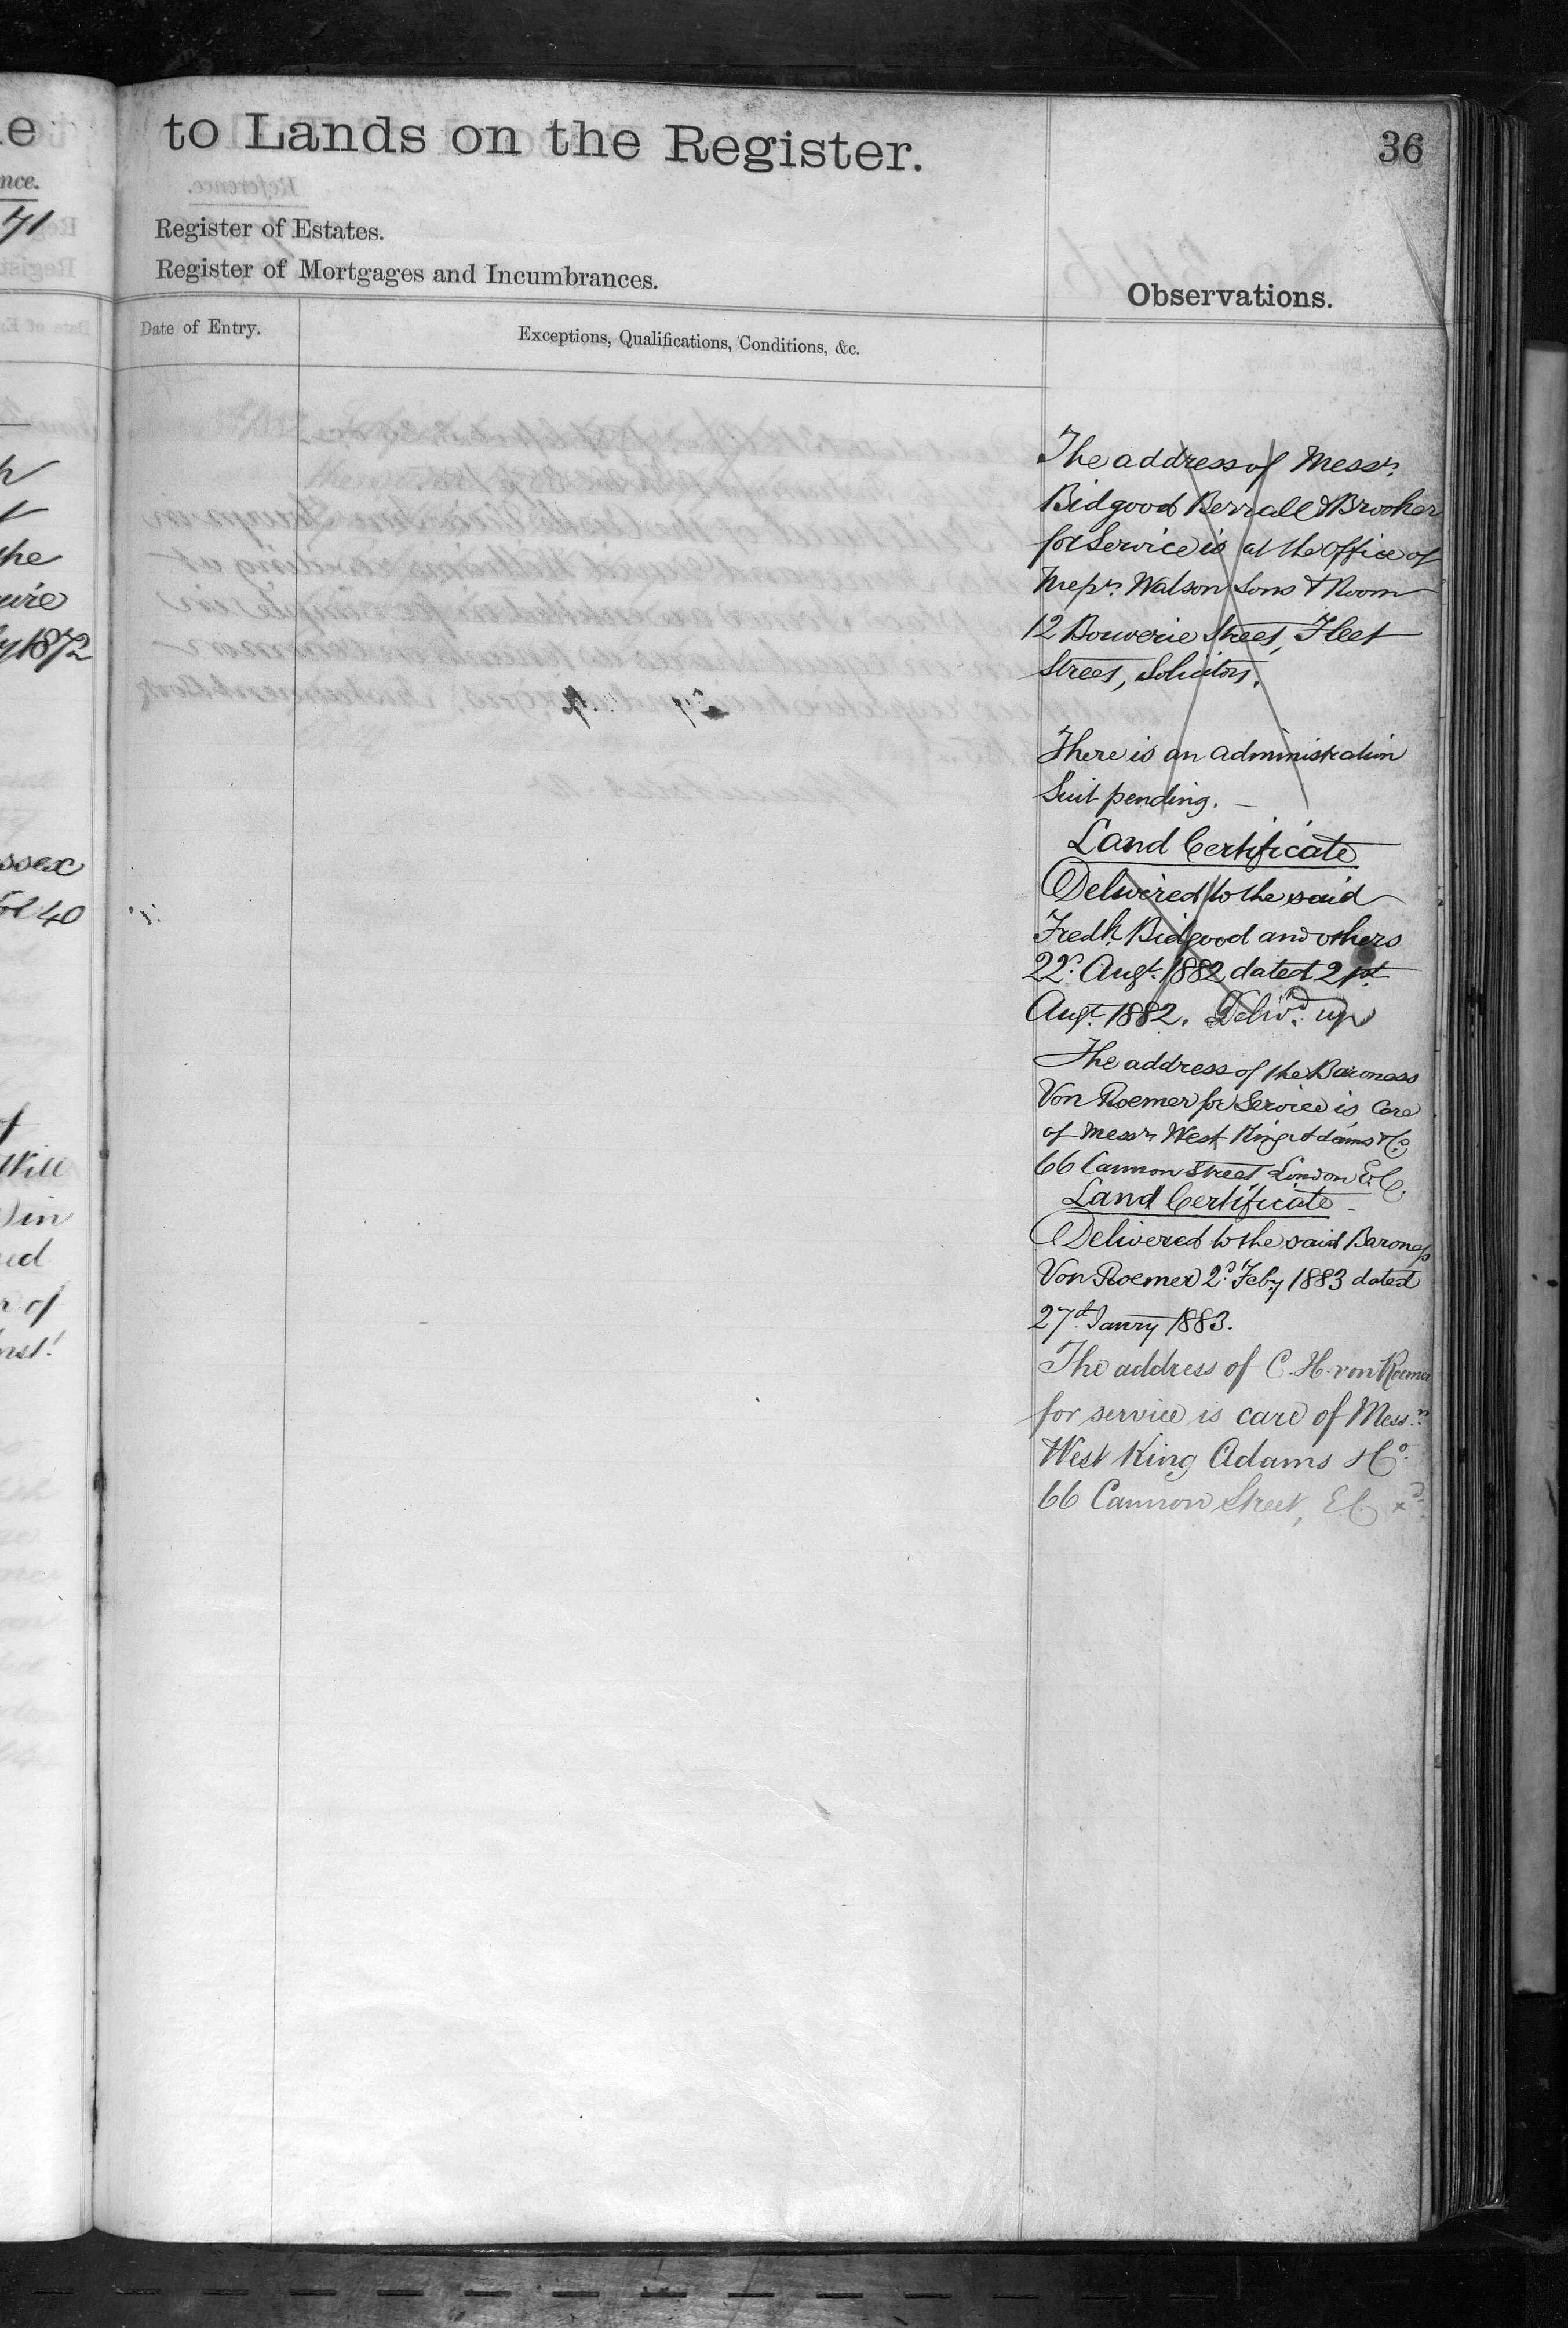 to Lands on the Register.
36
Register of Estates.
Register of Mortgages and Incumbrances.
Observations.
Date of Entry.
Exceptions, Qualifications, Conditions, &c.
The address of Messrs.
Bidgood Berrall & Brooker
for Service is at the Office of
Messrs. Watson Sons & Room
12 Bouverie Street, Fleet
Street, Solicitors.
There is an administration
Suit pending. —
Land Certificate
Delivered to the said
Fredk. Bidgood and others
22d. Augt. 1882 dated 21st
Augt. 1882. Delivd. up
The address of the Baroness
Von Roemer for Service is Care
of Messrs West King Adams & Co.
66 Cannon Street London E.C.
Land Certificate
Delivered to the said Baroness
Von Roemer 2d. Feby 1883 dated
27th Janry 1883.
The address of C. H. von Roemer
for service is care of Messrs.
West King Adams & Co.
66 Cannon Street, E.C.
nce.
71
he
y 1872
ssex
40
of
Will
in
ed
r of